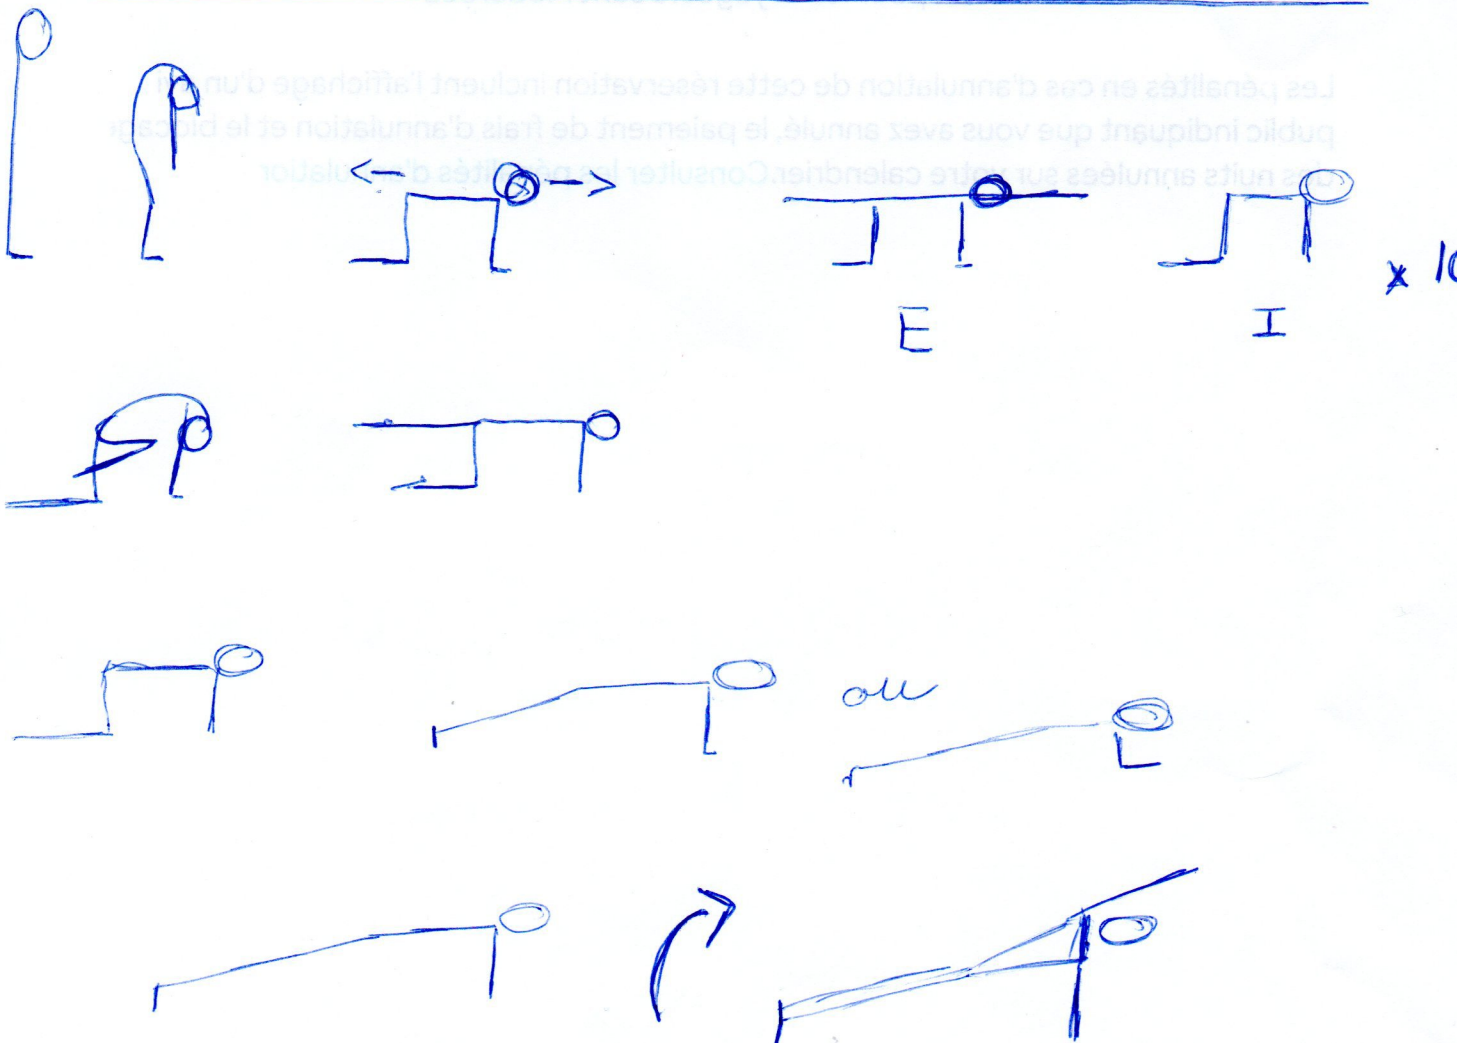 Les pénalités en cas d'annulation de cette réservation incluent l'affichage d'un
public indiquant que vous avez annulé, le paiement de frais d'annulation et le
des nuits annulées sur votre calendrier. Consulter les pénalités d'annulation
x 10
E I
ou